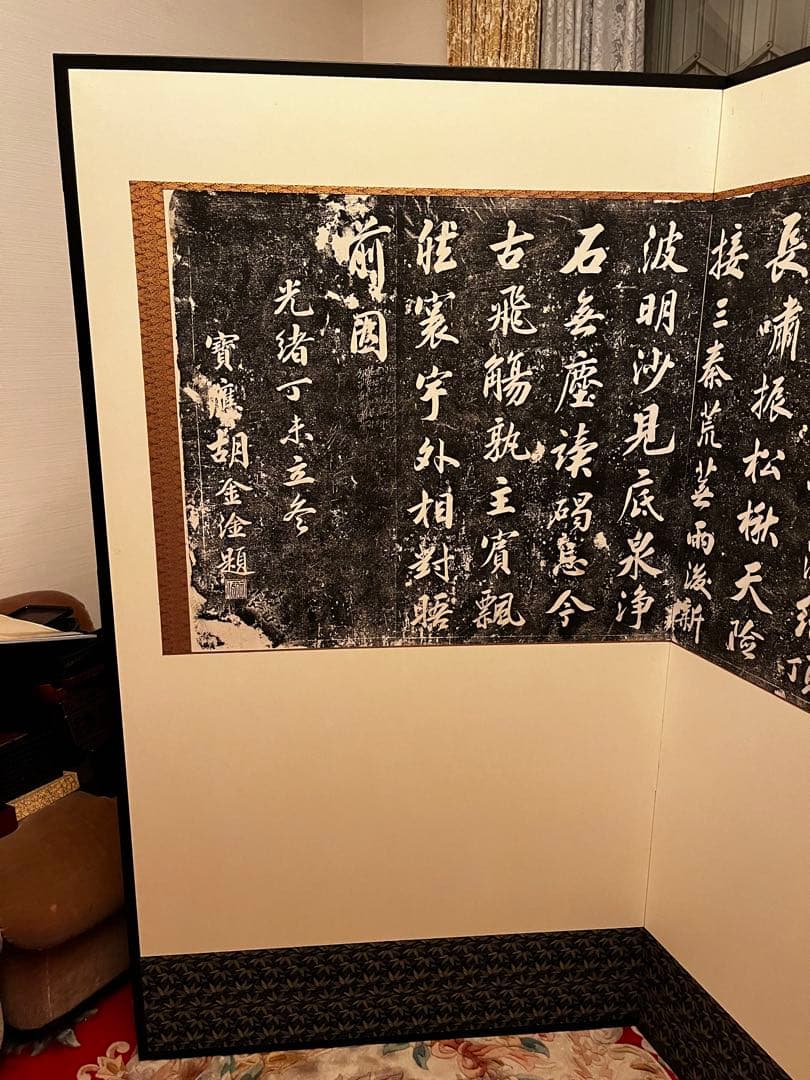 長嘯振松楸天險
接三秦荒蕪雨後新
波明沙見底泉淨
石無塵讀碣悲今
古飛觴孰主賓飄
然寰宇外相對晤
前因
光緒丁未立冬
寶應胡金淦題